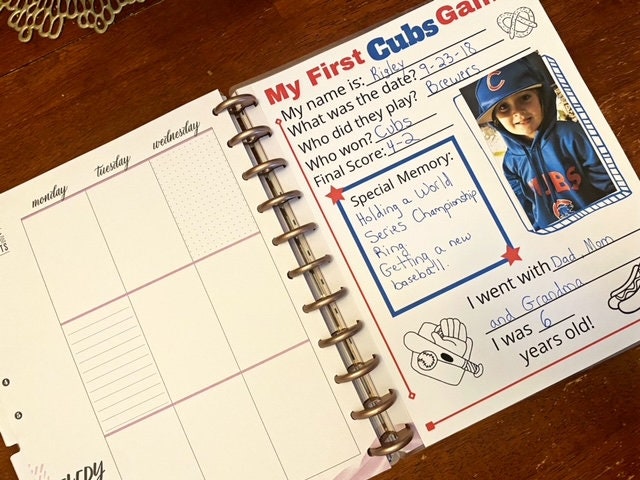 monday
tuesday
wednesday
TS
My First Cubs Gam
My name is: Rigley
What was the date? 9-23-18
Who did they play? Brewers
Who won? Cubs
Final Score: 4-2
Special Memory:
Holding a World
Series Championship
Ring
Getting a new
baseball.
C
UBS
I went with Dad, Mom
and Grandma
I was 6
years old!